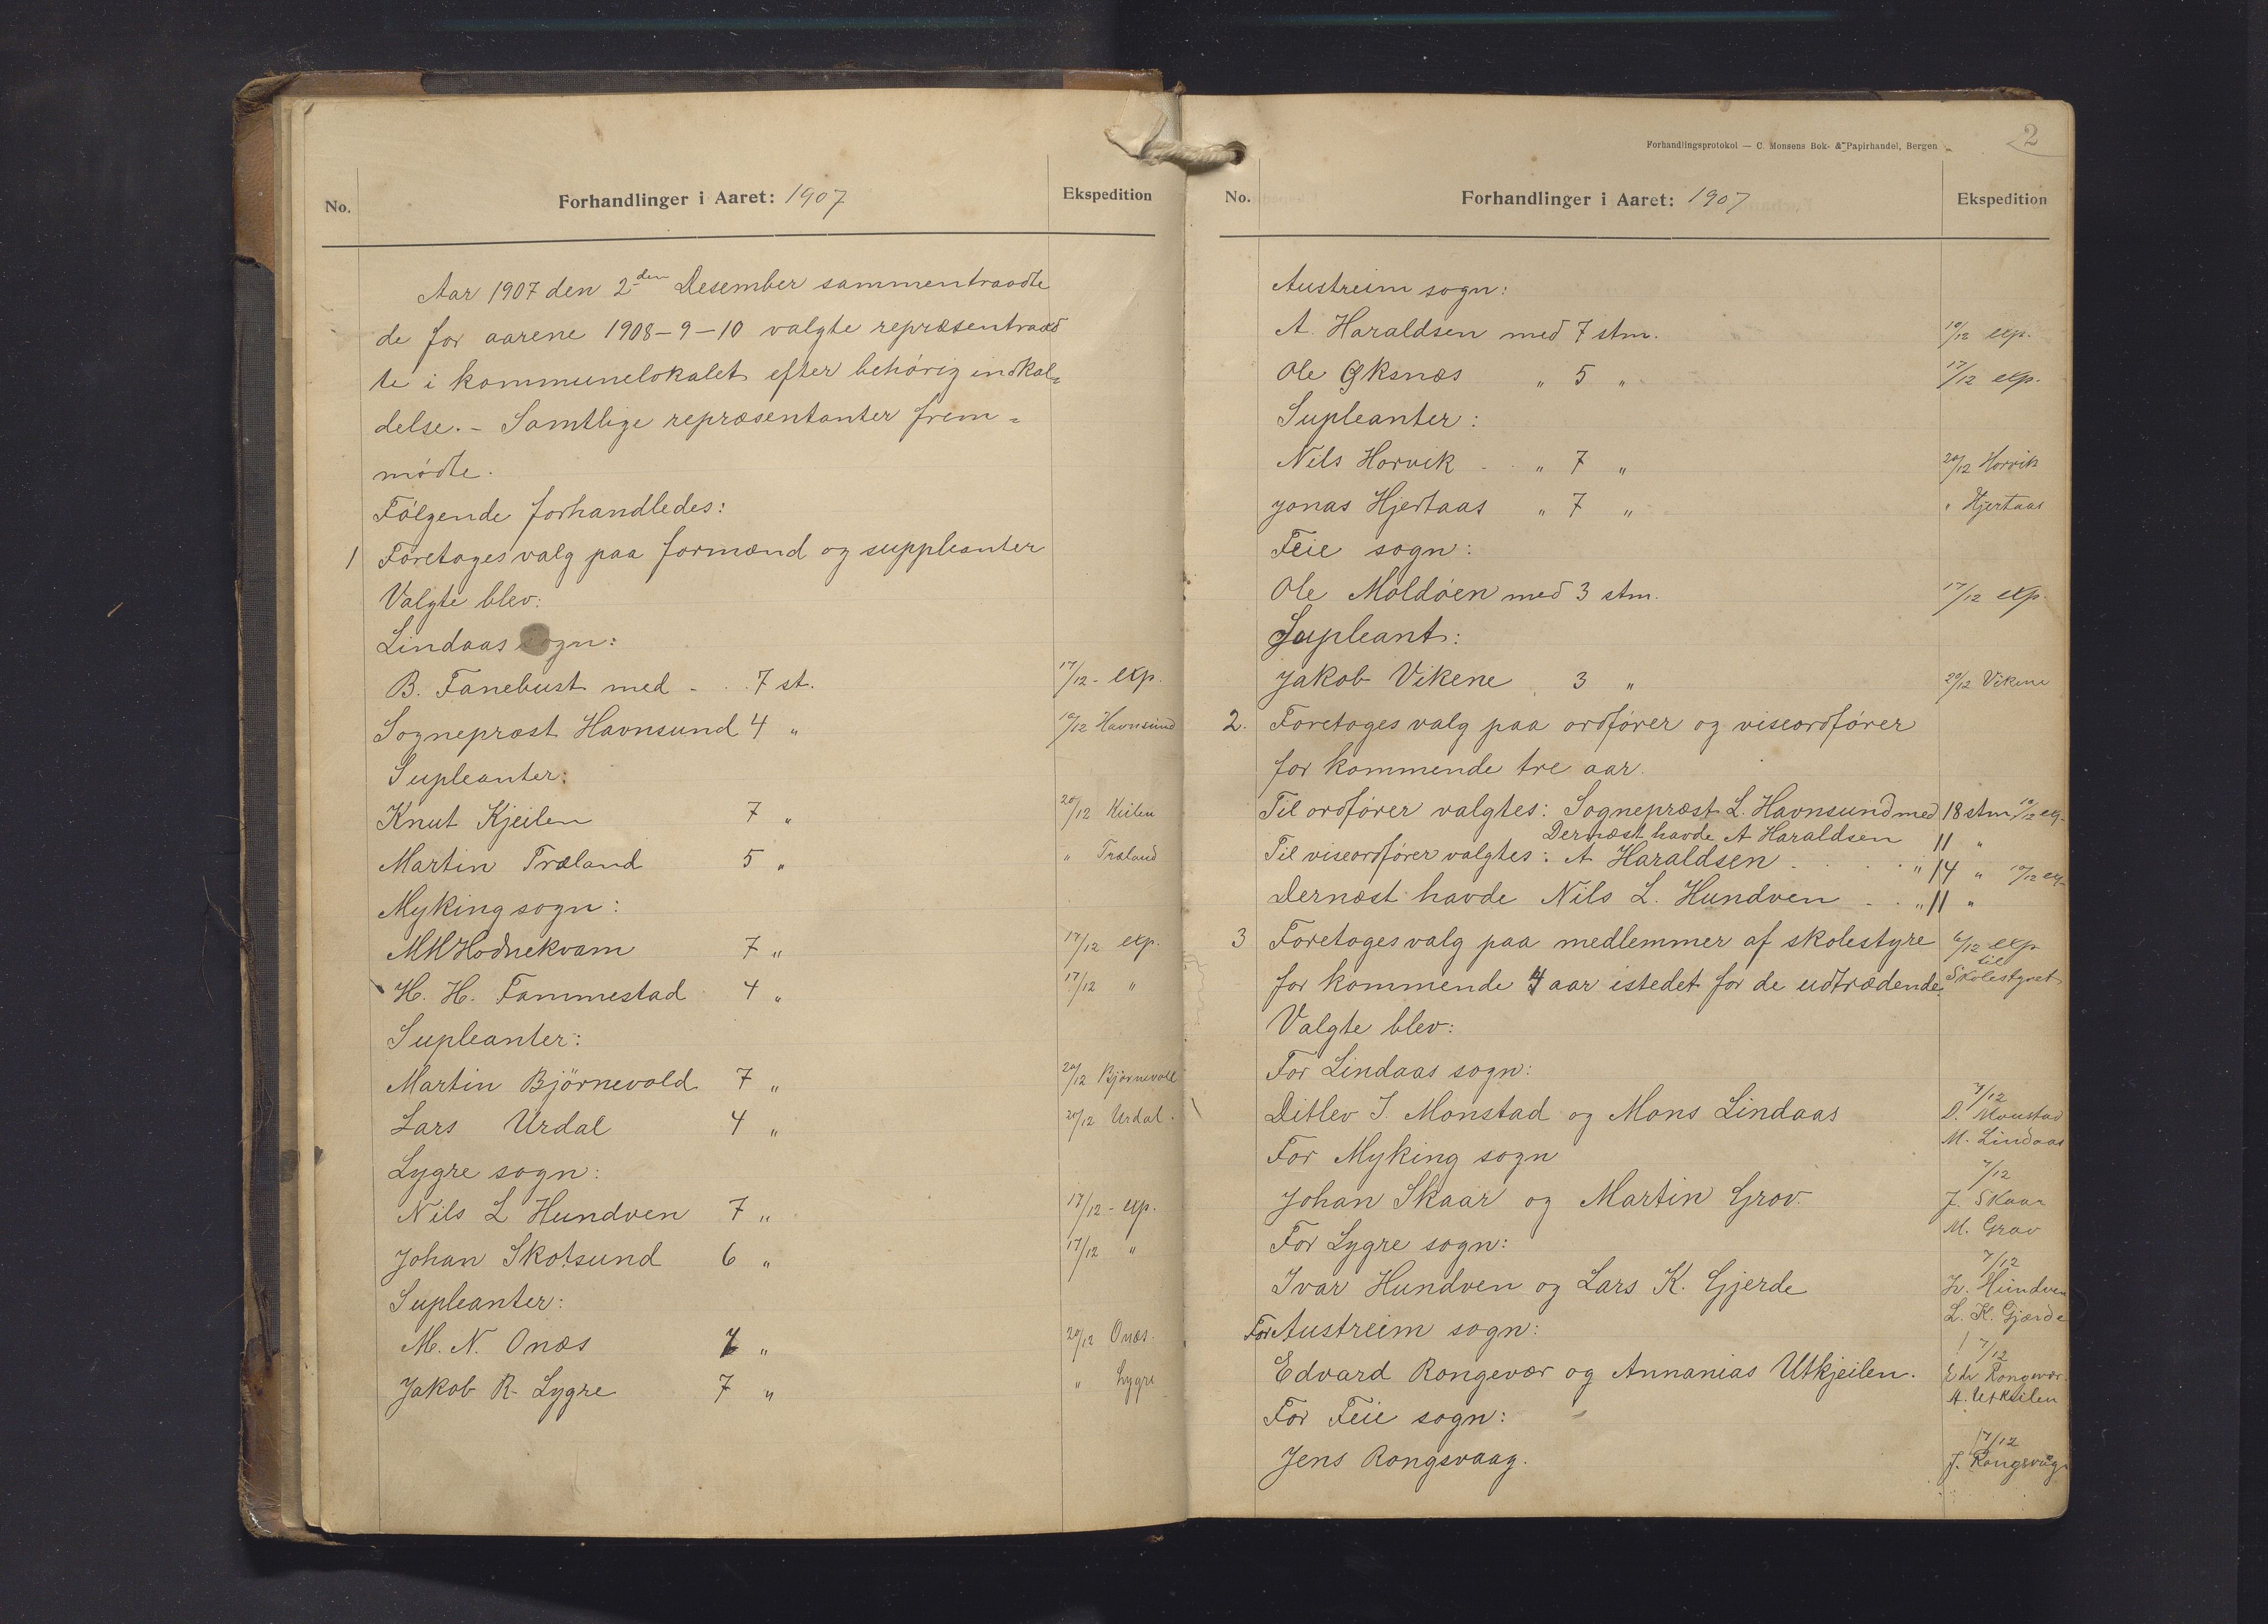 No.
Forhandlinger i Aaret: 1907
Ekspedition
Aar 1907 den 2den Desember sammentraadte
de for aarene 1908-9-10 valgte repræsentrand
te i kommunelokalet efter behørig indkal=
delse. - Samtlige repræsentanter frem=
mødte.
Følgende forhandledes:
1 Foretages valg paa formænd og suppleanter
Valgte blev:
Lindaas sogn:
B. Fanebust med - . . 7 st. 17/12 - exp.
Sogneprest Havnsund 4 " 10/12 Havnsund
Supleanter:
Knut Kjeilen 7 " 20/12 Keilen
Martin Træland 5 " " Træland
Myking sogn:
M M Hodnekvam 7 " 17/12 exp.
H. H. Fammestad 4 " 17/12 "
Supleanter:
Martin Bjørnevold 7 " 20/12 Bjørnevold
Lars Urdal 4 " 20/12 Urdal.
Lygre sogn:
Nils L Hundven 7 " 17/12 - exp.
Johan Skotsund 6 " 17/12 "
Supleanter:
M. N. Onæs 7 " 20/12 Onæs.
Jakob R. Lygre 7 " " Lygre
Forhandlingsprotokol — C. Monsens Bok- & Papirhandel, Bergen
2
No.
Forhandlinger i Aaret: 1907
Ekspedition
Austreim sogn:
A. Haraldsen med 7 stm. 10/12 exp.
Ole Øksnæs " 5 " 17/12 exp.
Supleanter:
Nils Horvik - " 7 " 20/12 Horvik
Jonas Hjertaas " 7 " " Hjertaas
Feie sogn:
Ole Moldøen med 3 stm. 17/12 exp.
Supleant:
Jakob Vikene 3 " 20/12 Vikene
2. Foretages valg paa ordfører og viseordfører
for kommende tre aar.
Til ordfører valgtes: Sogneprest L. Havnsund med 18 stm 10/12 ex.
Dernæst havde A Haraldsen 11 "
Til viseordfører valgtes: A Haraldsen - . . . " 14 " 10/12 ex.
Dernæst havde Nils L. Hundven - . . " 11 "
3 Foretages valg paa medlemmer af skolestyre 6/12 exp
til
for kommende 4 aar istedet for de udtrædende. Skolestyret
Valgte blev:
For Lindaas sogn:
7/12
Ditlev J. Monstad og Mons Lindaas D. Monstad
M. Lindaas
For Myking sogn
7/12
Johan Skaar og Martin Grov. J. Skaar
M. Grov
For Lygre sogn:
7/12
Ivar Hundven og Lars K. Gjerde Iv. Hundven
L. K. Gjerde
For Austreim sogn:
7/12
Edvard Rongevær og Annanias Utkjeilen. Edv Rongevær.
A. Utkeilen
For Feie sogn:
7/12
Jens Rongsvaag. J. Rongsvåg